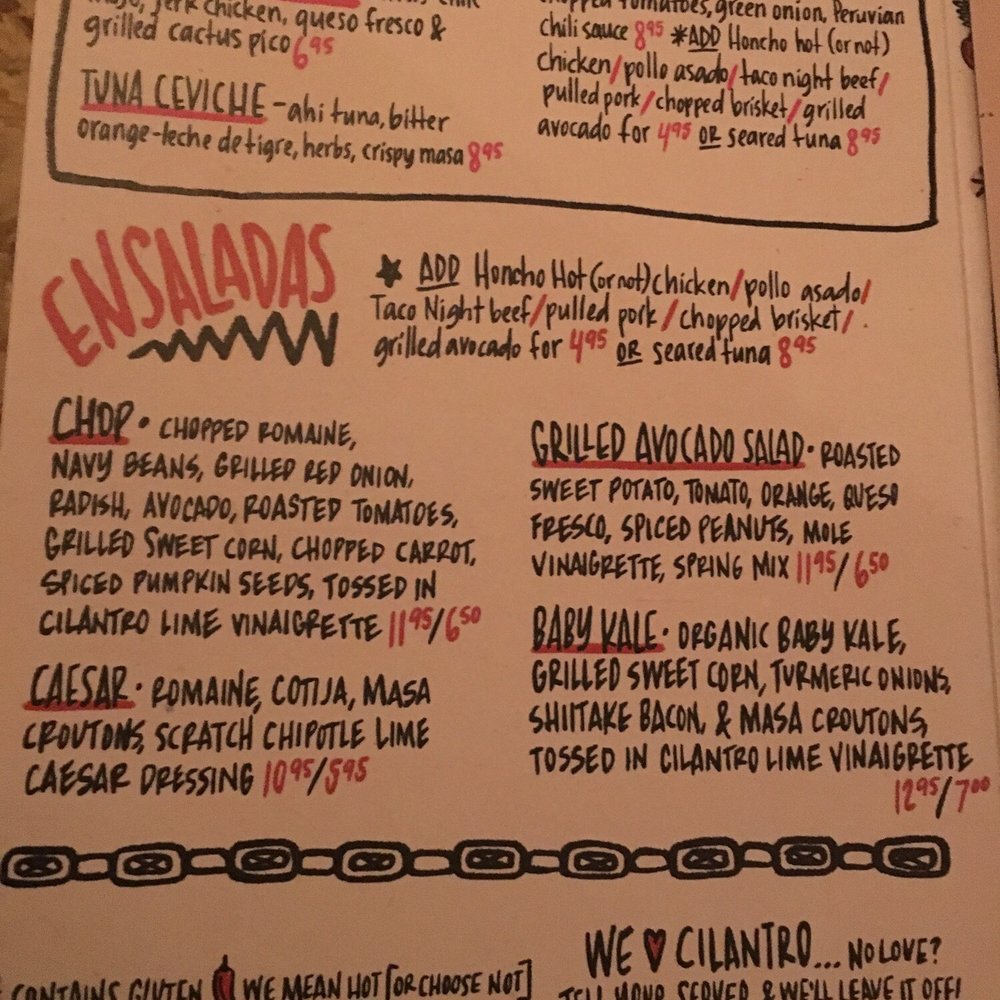 jerk chicken, queso fresco &
grilled cactus pico 6 95
TUNA CEVICHE - ahi tuna, bitter
orange-leche de tigre, herbs, crispy masa 8 95
chopped tomatoes, green onion, Peruvian
chili sauce 8 95 *ADD Honcho hot (or not)
chicken/pollo asado/taco night beef/
pulled pork/chopped brisket/grilled
avocado for 4 95 OR seared tuna 8 95
ENSALADAS
★ ADD Honcho Hot (or not) chicken/pollo asado/
Taco Night beef/pulled pork/chopped brisket/
grilled avocado for 4 95 OR seared tuna 8 95
CHOP • CHOPPED ROMAINE,
NAVY BEANS, GRILLED RED ONION,
RADISH, AVOCADO, ROASTED TOMATOES,
GRILLED SWEET CORN, CHOPPED CARROT,
SPICED PUMPKIN SEEDS, TOSSED IN
CILANTRO LIME VINAIGRETTE 11 95/6 50
CAESAR • ROMAINE, COTIJA, MASA
CROUTONS, SCRATCH CHIPOTLE LIME
CAESAR DRESSING 10 95/5 95
GRILLED AVOCADO SALAD • ROASTED
SWEET POTATO, TOMATO, ORANGE, QUESO
FRESCO, SPICED PEANUTS, MOLE
VINAIGRETTE, SPRING MIX 11 95/6 50
BABY KALE • ORGANIC BABY KALE,
GRILLED SWEET CORN, TURMERIC ONIONS,
SHIITAKE BACON, & MASA CROUTONS,
TOSSED IN CILANTRO LIME VINAIGRETTE
12 95/7 00
CONTAINS GLUTEN WE MEAN HOT [OR CHOOSE NOT]
WE ♥ CILANTRO... NO LOVE?
TELL YOUR SERVER & WE'LL LEAVE IT OFF!